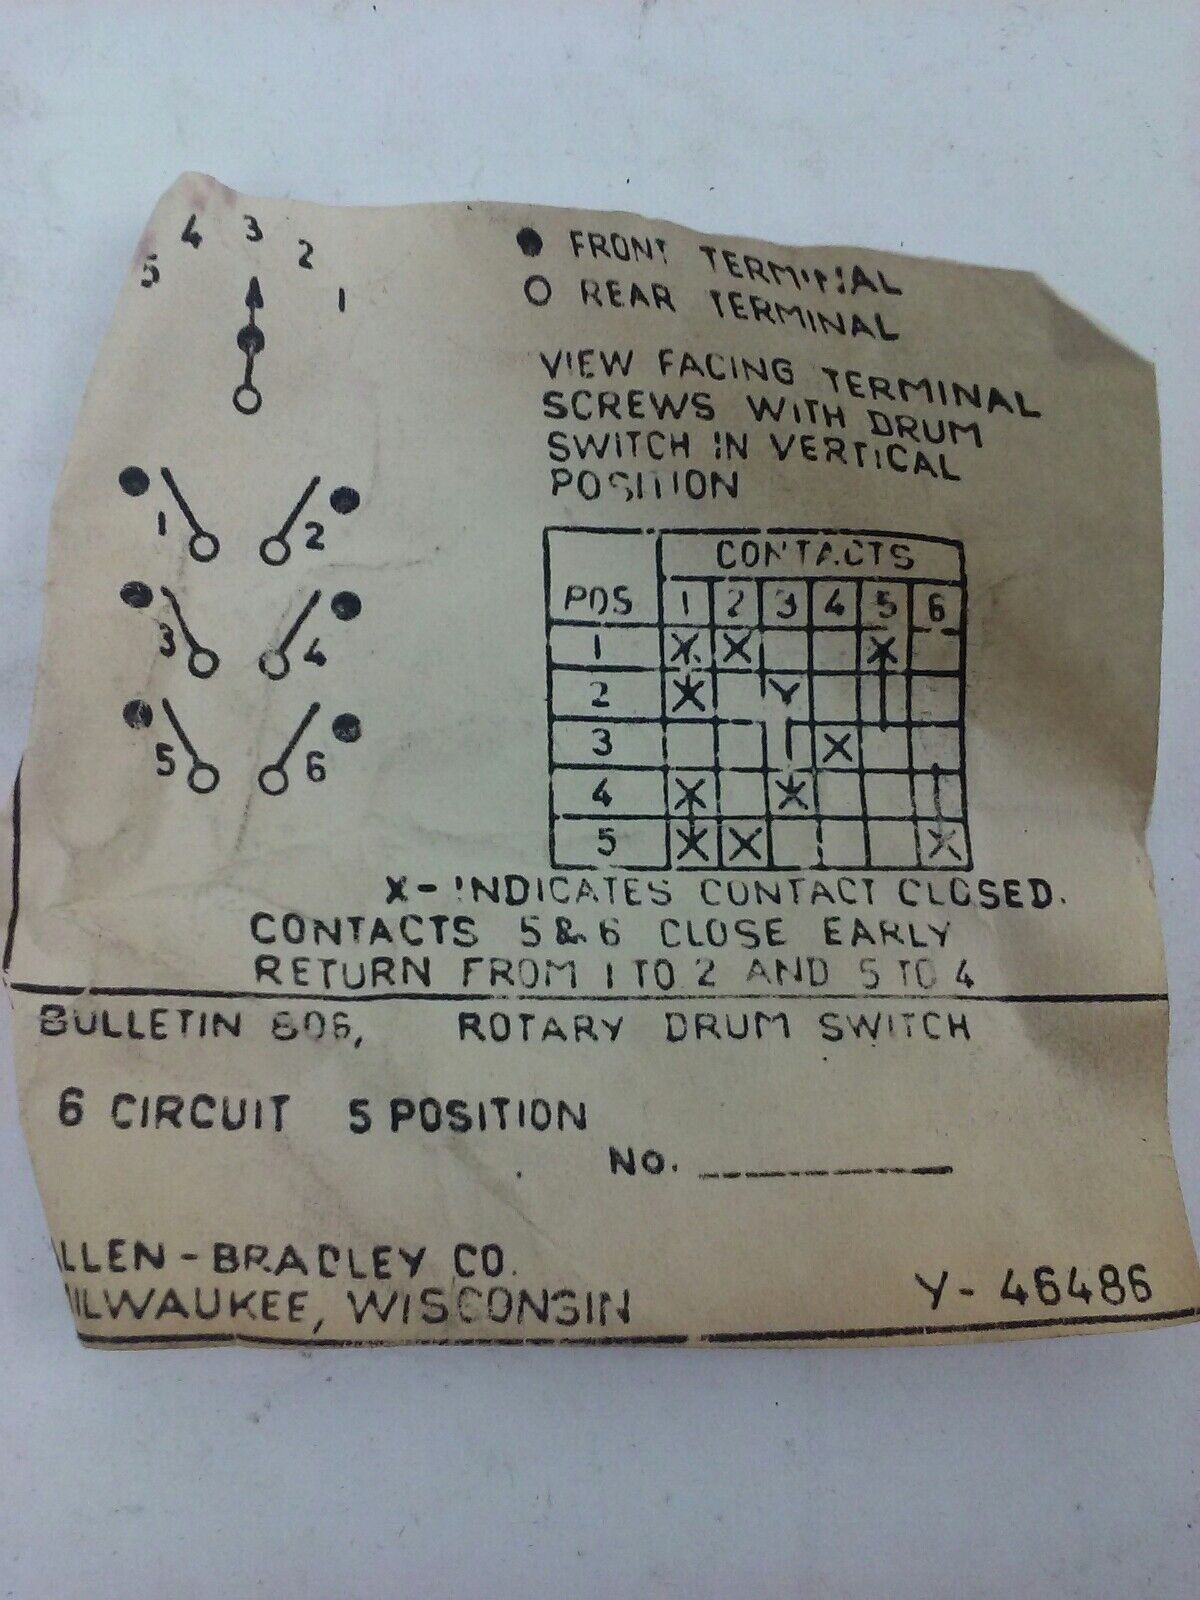 5 4 3 2 1
● FRONT TERMINAL
○ REAR TERMINAL
VIEW FACING TERMINAL
SCREWS WITH DRUM
SWITCH IN VERTICAL
POSITION
1 2
3 4
5 6
CONTACTS
POS 1 2 3 4 5 6
1 X X X
2 X X
3 X
4 X X
5 X X X
X- INDICATES CONTACT CLOSED.
CONTACTS 5 & 6 CLOSE EARLY
RETURN FROM 1 TO 2 AND 5 TO 4
BULLETIN 806, ROTARY DRUM SWITCH
6 CIRCUIT 5 POSITION
NO.
LLEN-BRADLEY CO.
ILWAUKEE, WISCONSIN
Y-46486